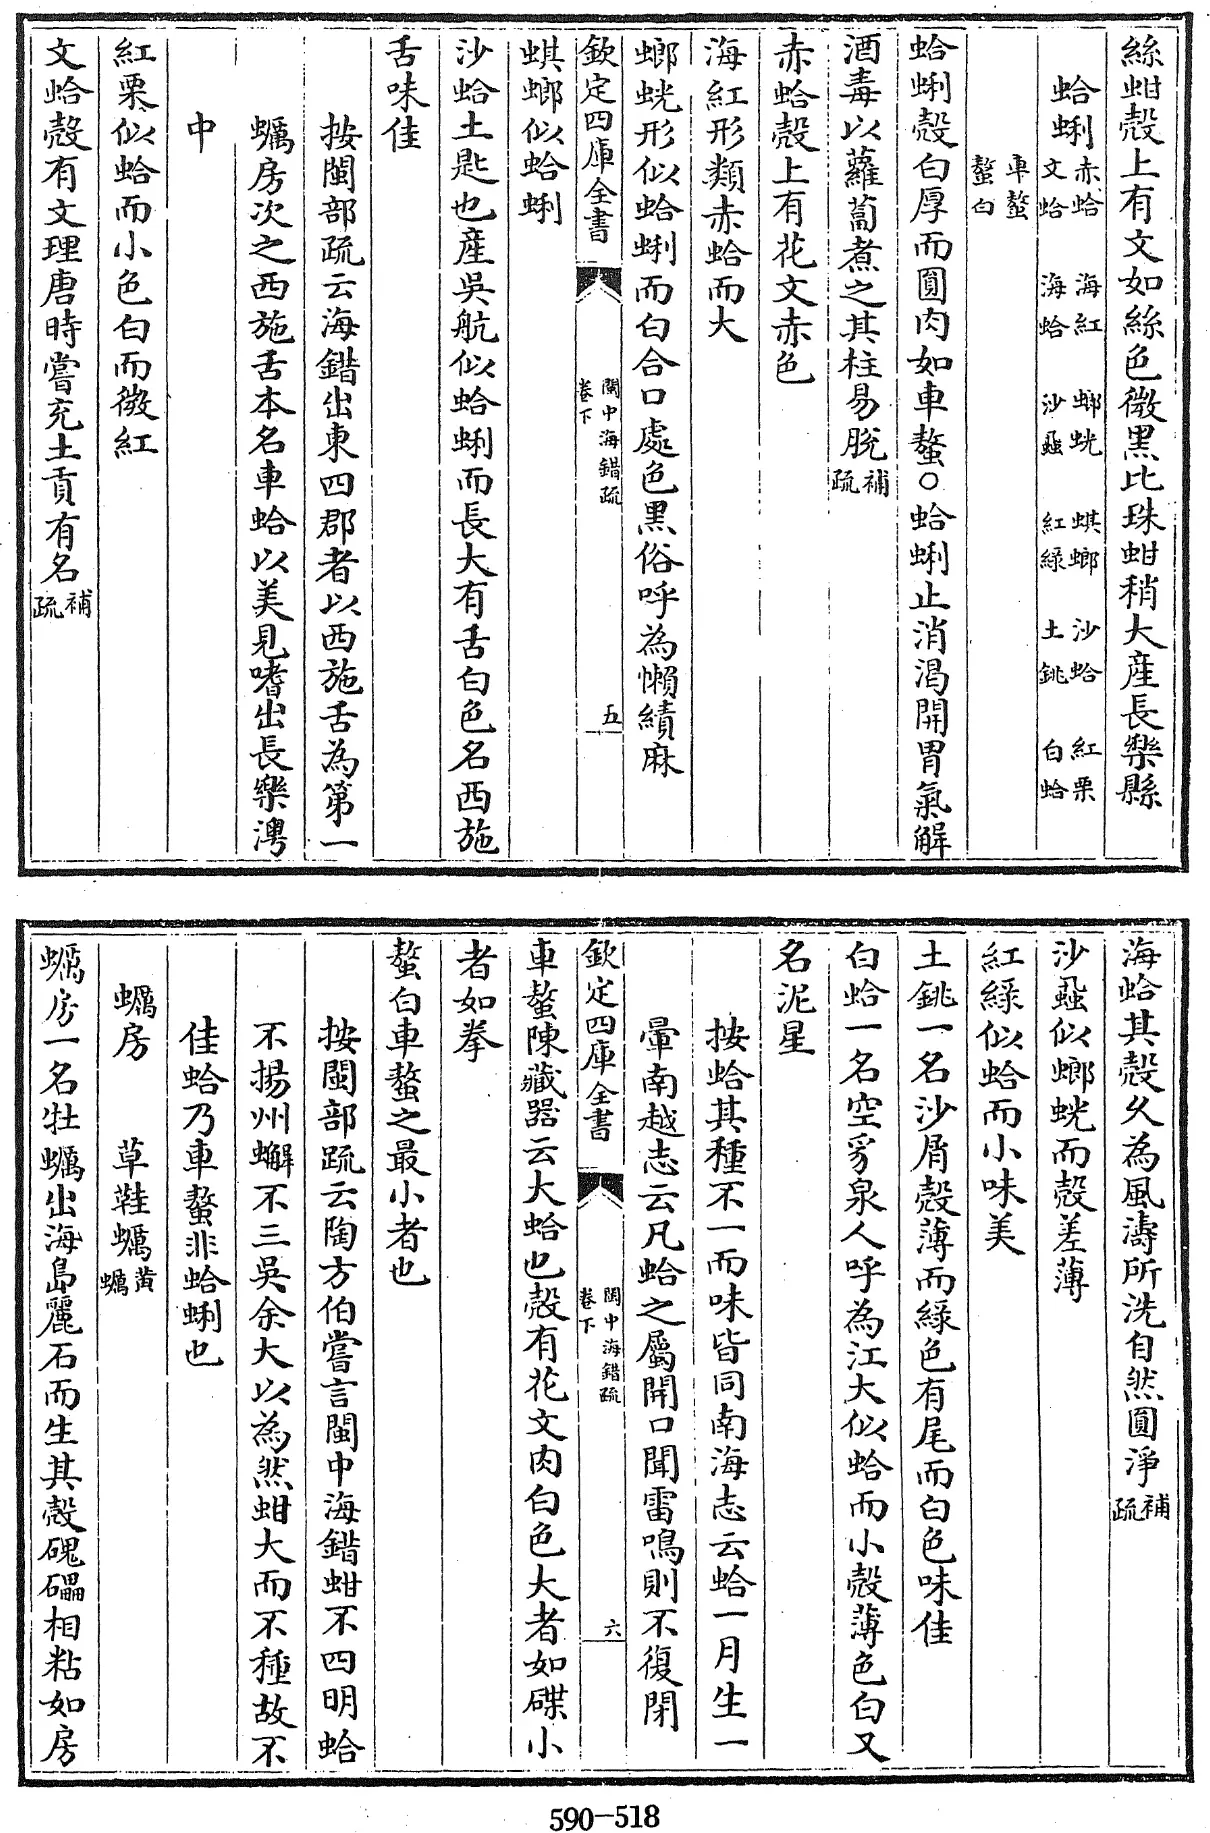 絲蚶殼上有文如絲色微黑比珠蚶稍大産長樂縣
蛤蜊赤蛤文蛤海紅海蛤螂蛖沙蝨蜞螂紅綠沙蛤土銚紅栗白蛤
車螯螯白
蛤蜊殼白厚而圓肉如車螯○蛤蜊止消渇開胃氣解
酒毒以蘿蔔煮之其柱易脫補疏
赤蛤殼上有花文赤色
海紅形類赤蛤而大
螂蛖形似蛤蜊而白合口處色黒俗呼為懶績麻
欽定四庫全書 閩中海錯疏卷下 五
蜞螂似蛤蜊
沙蛤土匙也産吳航似蛤蜊而長大有舌白色名西施
舌味佳
按閩部疏云海錯出東四郡者以西施舌為第一
蠣房次之西施舌本名車蛤以美見嗜出長樂灣
中
紅栗似蛤而小色白而微紅
文蛤殼有文理唐時嘗充土貢有名補疏
海蛤其殼久為風濤所洗自然圓淨補疏
沙蝨似螂蛖而殼差薄
紅綠似蛤而小味美
土銚一名沙屑殼薄而綠色有尾而白色味佳
白蛤一名空豸泉人呼為江大似蛤而小殼薄色白又
名泥星
按蛤其種不一而味皆同南海志云蛤一月生一
暈南越志云凡蛤之屬開口聞雷鳴則不復閉
欽定四庫全書 閩中海錯疏卷下 六
車螯陳藏器云大蛤也殼有花文肉白色大者如碟小
者如拳
螯白車螯之最小者也
按閩部疏云陶方伯嘗言閩中海錯蚶不四明蛤
不揚州蠏不三吳余大以為然蚶大而不種故不
佳蛤乃車螯非蛤蜊也
蠣房 草鞋蠣黄蠣
蠣房一名牡蠣出海島麗石而生其殼磈礧相粘如房
590-518